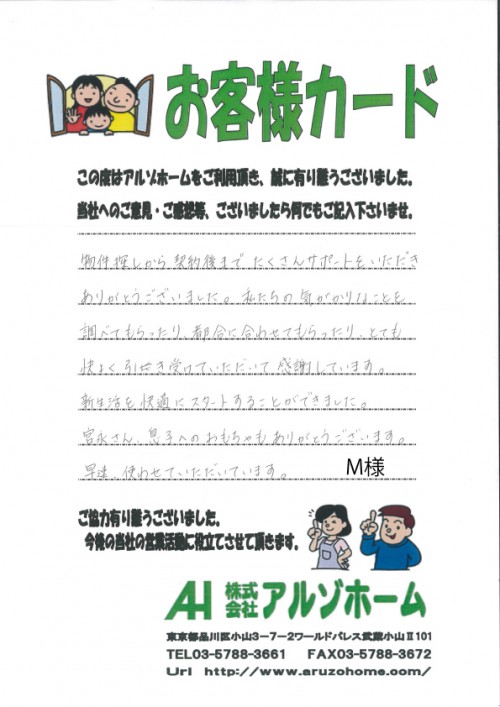 お客様カード
この度はアルゾホームをご利用頂き、誠に有り難うございました。
当社へのご意見・ご感想等、ございましたら何でもご記入下さいませ。
物件探しから契約後まで たくさんサポートをいただき
ありがとうございました。私たちの気がかりなことを
調べてもらったり、都合に合わせてもらったり、とても
快よく引き受けていただいて感謝しています。
新生活を快適にスタートすることができました。
宮永さん、息子へのおもちゃもありがとうございます。
早速、使わせていただいています。
M様
ご協力有り難うございました。
今後の当社の営業活動に役立てさせて頂きます。
AH 株式会社 アルゾホーム
東京都品川区小山3-7-2ワールドパレス武蔵小山Ⅱ101
TEL03-5788-3661 FAX03-5788-3672
Url http://www.aruzohome.com/